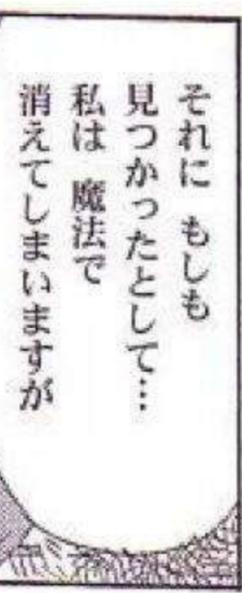 それに もしも
見つかったとして…
私は 魔法で
消えてしまいますが